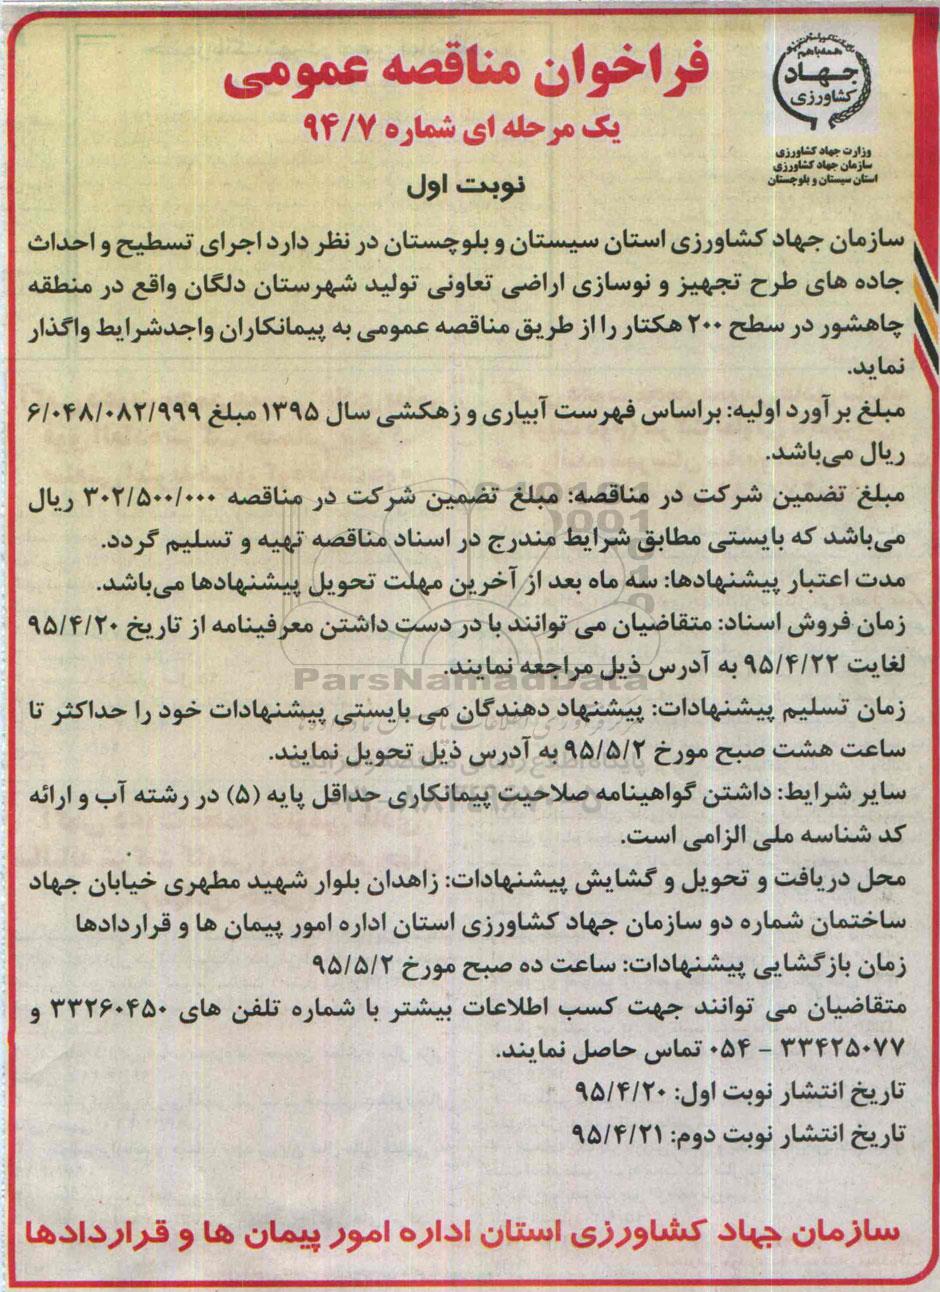 همه با هم
جهاد
کشاورزی
وزارت جهاد کشاورزی
سازمان جهاد کشاورزی
استان سیستان و بلوچستان
فراخوان مناقصه عمومی
یک مرحله ای شماره ۹۴/۷
نوبت اول
سازمان جهاد کشاورزی استان سیستان و بلوچستان در نظر دارد اجرای تسطیح و احداث
جاده های طرح تجهیز و نوسازی اراضی تعاونی تولید شهرستان دلگان واقع در منطقه
چاهشور در سطح ۲۰۰ هکتار را از طریق مناقصه عمومی به پیمانکاران واجدشرایط واگذار
نماید.
مبلغ برآورد اولیه: براساس فهرست آبیاری و زهکشی سال ۱۳۹۵ مبلغ ۶/۰۴۸/۰۸۲/۹۹۹
ریال می‌باشد.
مبلغ تضمین شرکت در مناقصه: مبلغ تضمین شرکت در مناقصه ۳۰۲/۵۰۰/۰۰۰ ریال
می‌باشد که بایستی مطابق شرایط مندرج در اسناد مناقصه تهیه و تسلیم گردد.
مدت اعتبار پیشنهادها: سه ماه بعد از آخرین مهلت تحویل پیشنهادها می‌باشد.
زمان فروش اسناد: متقاضیان می توانند با در دست داشتن معرفینامه از تاریخ ۹۵/۴/۲۰
لغایت ۹۵/۴/۲۲ به آدرس ذیل مراجعه نمایند.
ParsNamadData
زمان تسلیم پیشنهادات: پیشنهاد دهندگان می بایستی پیشنهادات خود را حداکثر تا
ساعت هشت صبح مورخ ۹۵/۵/۲ به آدرس ذیل تحویل نمایند.
سایر شرایط: داشتن گواهینامه صلاحیت پیمانکاری حداقل پایه (۵) در رشته آب و ارائه
کد شناسه ملی الزامی است.
محل دریافت و تحویل و گشایش پیشنهادات: زاهدان بلوار شهید مطهری خیابان جهاد
ساختمان شماره دو سازمان جهاد کشاورزی استان اداره امور پیمان ها و قراردادها
زمان بازگشایی پیشنهادات: ساعت ده صبح مورخ ۹۵/۵/۲
متقاضیان می توانند جهت کسب اطلاعات بیشتر با شماره تلفن های ۳۳۲۶۰۴۵۰ و
۳۳۴۲۵۰۷۷ - ۰۵۴ تماس حاصل نمایند.
تاریخ انتشار نوبت اول: ۹۵/۴/۲۰
تاریخ انتشار نوبت دوم: ۹۵/۴/۲۱
سازمان جهاد کشاورزی استان اداره امور پیمان ها و قراردادها